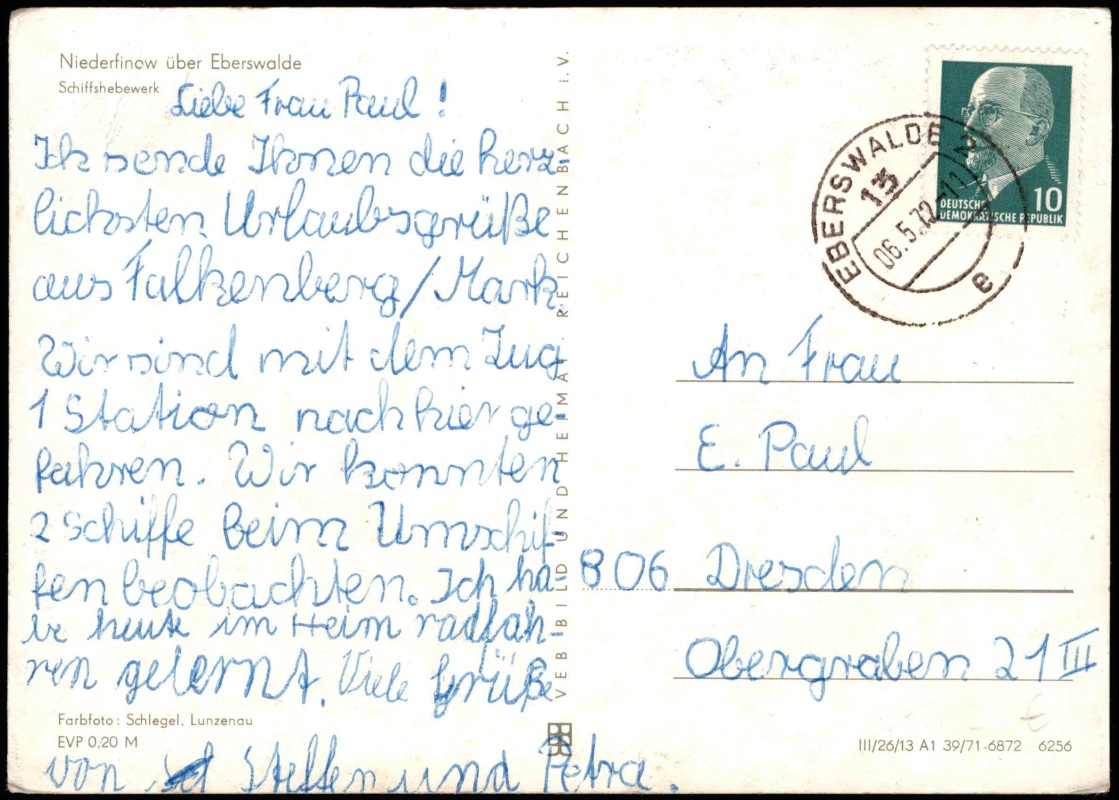 Niederfinow über Eberswalde
Schiffshebewerk
Liebe Frau Paul!
Ich sende Ihnen die herz-
lichsten Urlaubsgrüße
aus Falkenberg/Mark.
Wir sind mit dem Zug
1 Station nach hier ge-
fahren. Wir konnten
2 Schiffe beim Umschif-
fen beobachten. Ich ha-
be heute im Heim radfah-
ren gelernt. Viele Grüße
von Steffen und Petra.
Farbfoto: Schlegel, Lunzenau
EVP 0,20 M
VEB BILD UND HEIMAT REICHENBACH i. V.
EBERSWALDE 2
13
06.5.72-11
e
10
DEUTSCHE
DEMOKRATISCHE REPUBLIK
An Frau
E. Paul
806 Dresden
Obergraben 21 III
III/26/13 A1 39/71-6872 6256